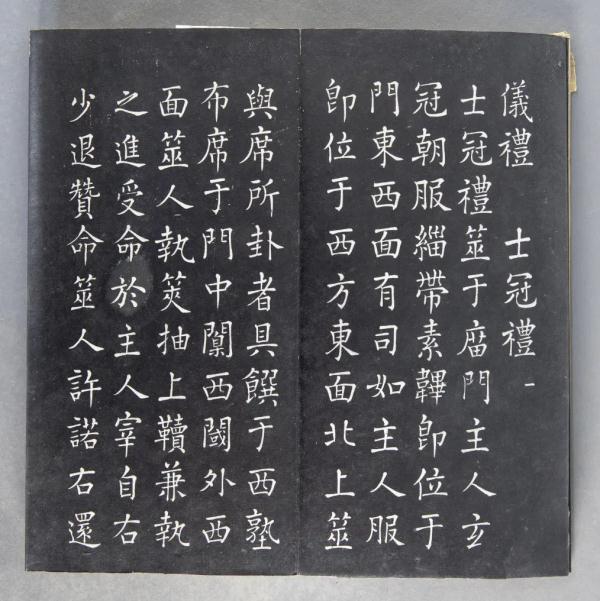 儀禮 士冠禮一
士冠禮筮于庿門主人玄
冠朝服緇帶素韠卽位于
門東西面有司如主人服
卽位于西方東面北上筮
與席所卦者具饌于西塾
布席于門中闑西閾外西
面筮人執筴抽上韇兼執
之進受命於主人宰自右
少退贊命筮人許諾右還